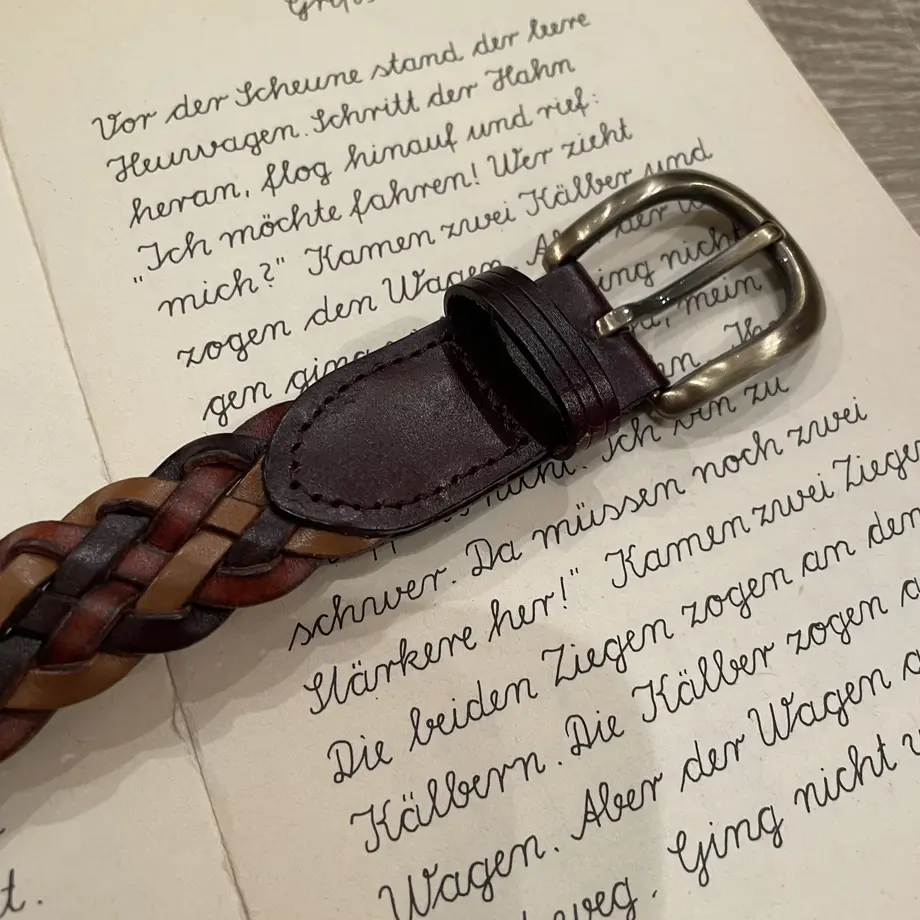 Vor der Scheune stand der leere
Heuwagen. Schritt der Hahn
heran, flog hinauf und rief:
"Ich möchte fahren! Wer zieht
mich?" Kamen zwei Kälber und
zogen den Wagen. Aber der
gen ging ging nicht
mein
Ich bin zu
schwer. Da müssen noch zwei
Stärkere her!" Kamen zwei Ziegen
Die beiden Ziegen zogen an den
Kälbern. Die Kälber zogen
Wagen. Aber der Wagen
weg. Ging nicht
t.